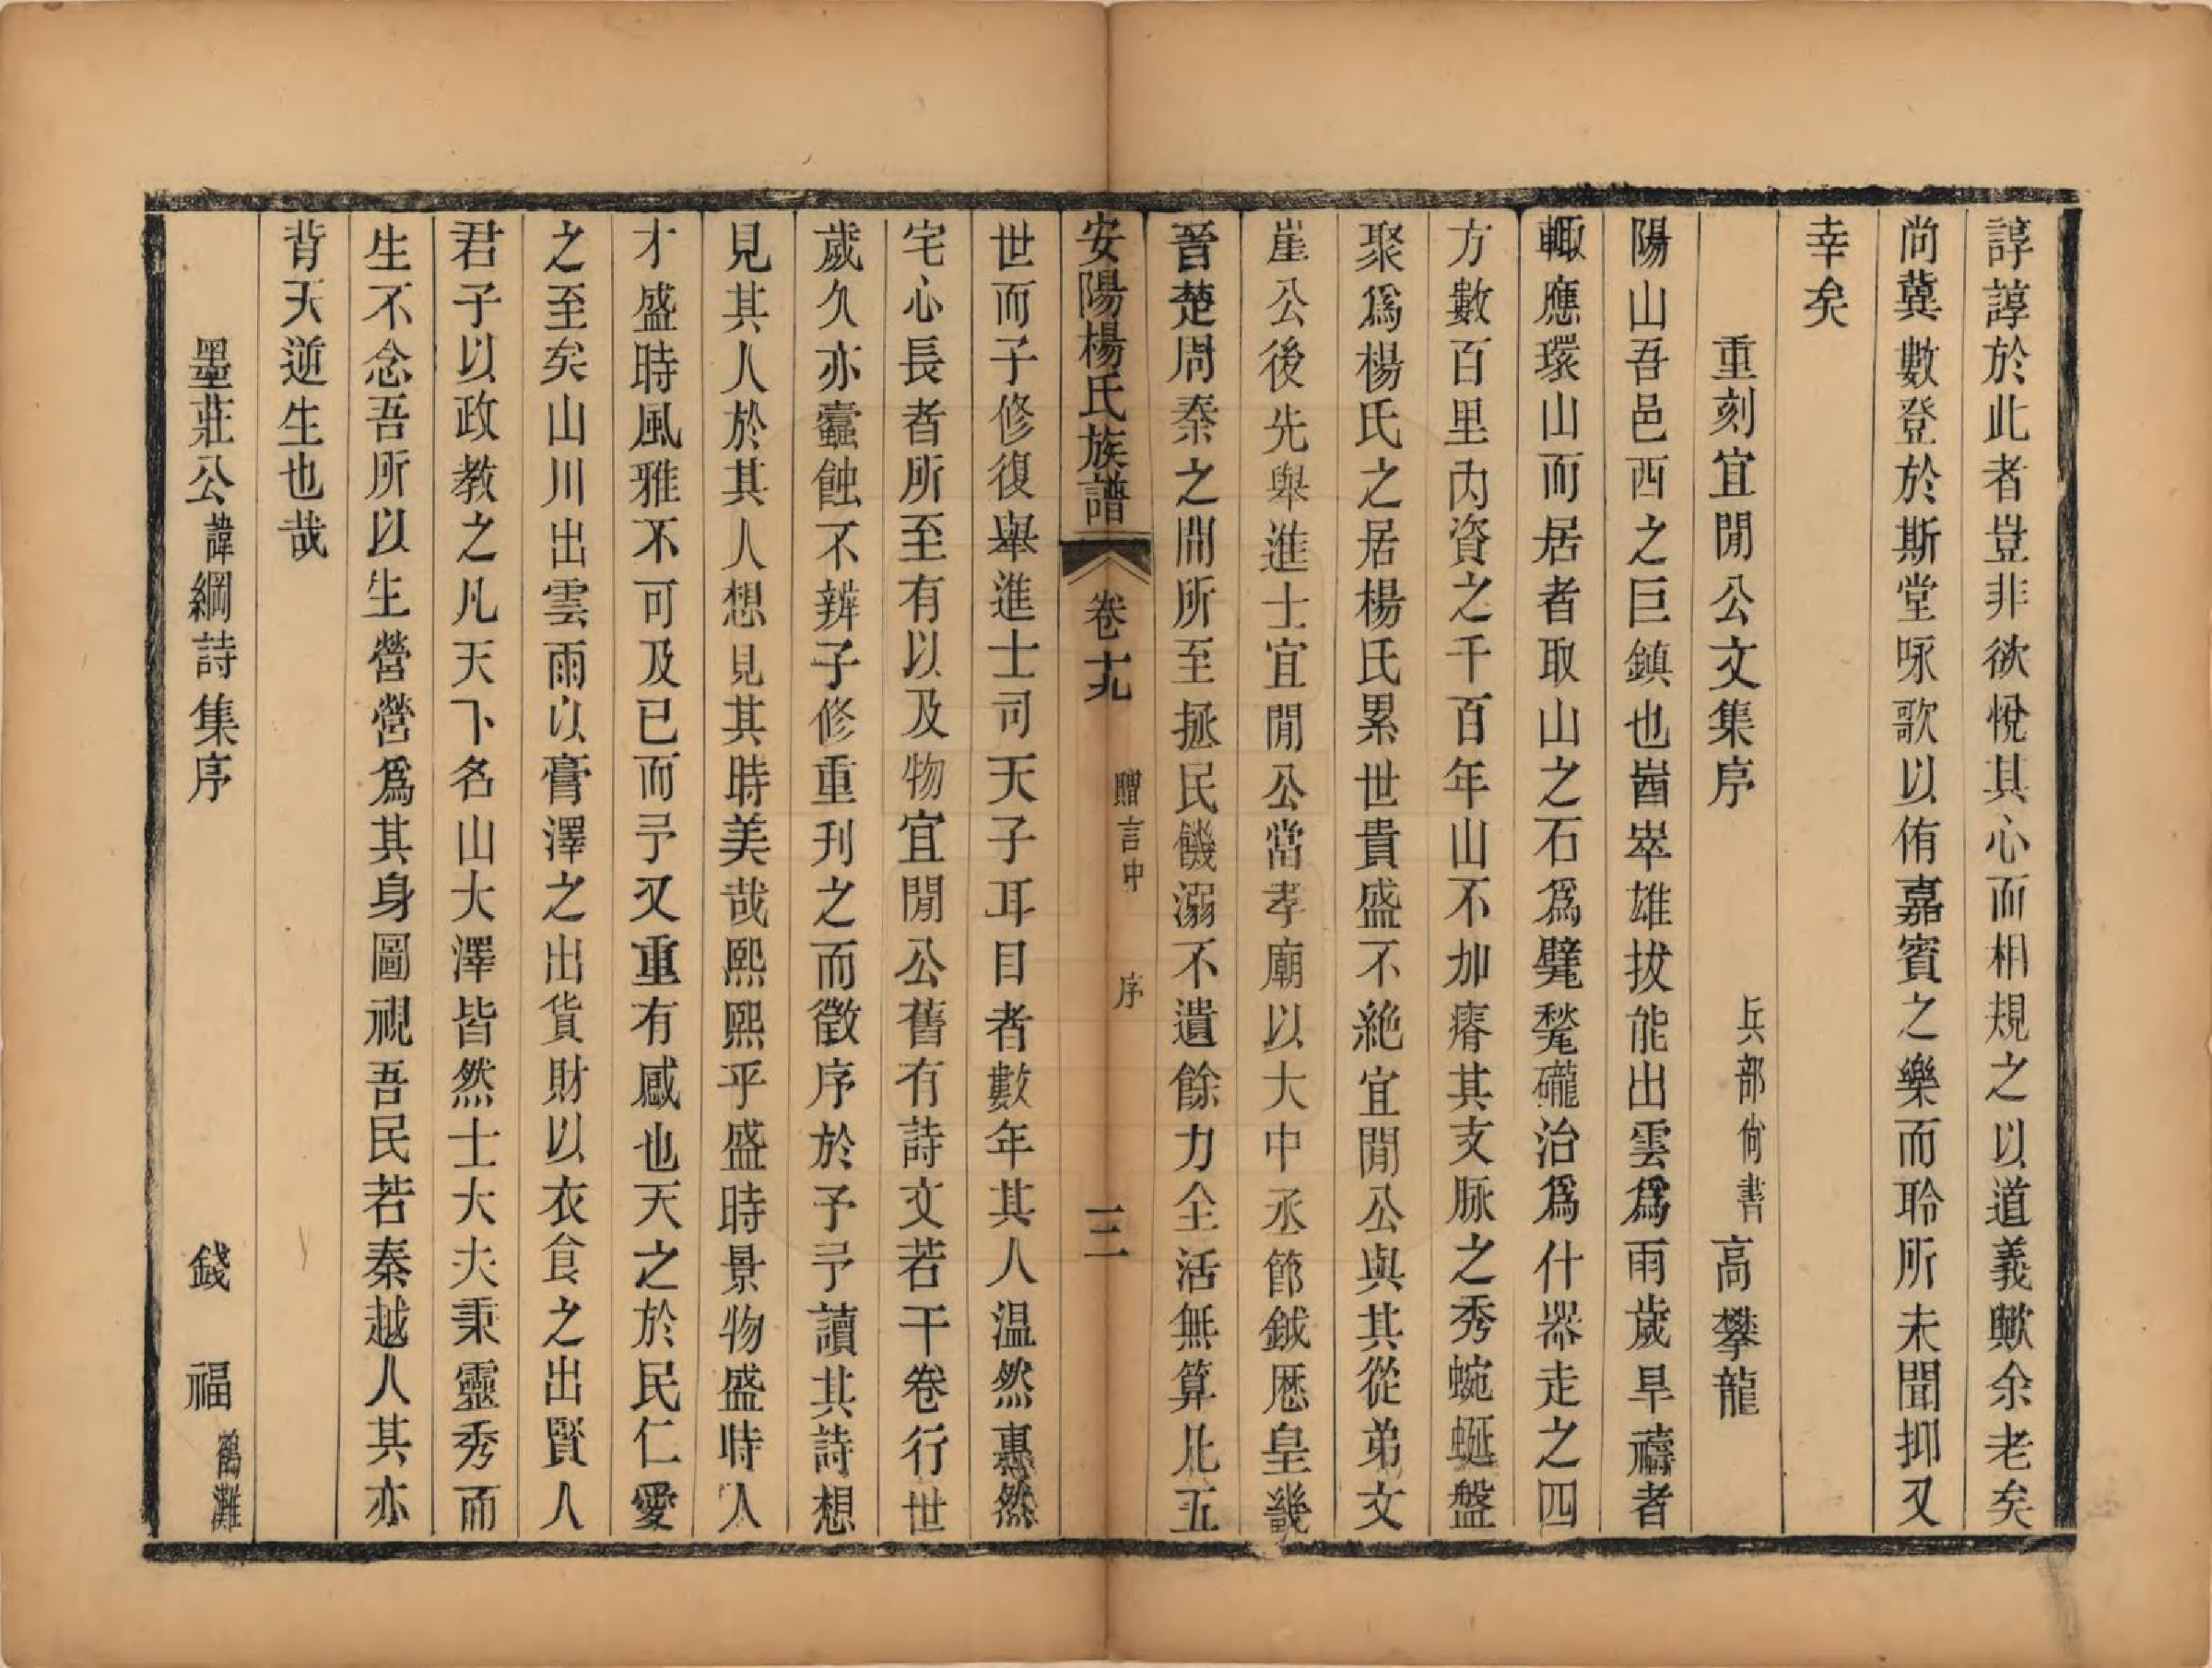 諄諄於此者豈非欲悅其心而相規之以道義歟余老矣
尚冀數登於斯堂咏歌以侑嘉賓之樂而聆所未聞抑又
幸矣
重刻宜閒公文集序 兵部尙書高攀龍
陽山吾邑西之巨鎮也崷崒雄拔能出雲爲雨歲旱禱者
輙應環山而居者取山之石爲甓甃礲治爲什器走之四
方數百里內資之千百年山不加瘠其支脈之秀蜿蜒盤
聚爲楊氏之居楊氏累世貴盛不絶宜閒公與其從弟文
崖公後先舉進士宜閒公當孝廟以大中丞節鉞歷皇畿
晉楚周秦之間所至拯民饑溺不遺餘力全活無算凡五
安陽楊氏族譜 卷十九 贈言中 序 三
世而子修復舉進士司天子耳目者數年其人温然惠然
宅心長者所至有以及物宜閒公舊有詩文若干卷行世
歲久亦蠹蝕不辨子修重刊之而徵序於予予讀其詩想
見其人於其人想見其時美哉熙熙乎盛時景物盛時人
才盛時風雅不可及已而予又重有感也天之於民仁愛
之至矣山川出雲雨以膏澤之出貨財以衣食之出賢人
君子以政教之凡天下名山大澤皆然士大夫秉靈秀而
生不念吾所以生營營爲其身圖視吾民若秦越人其亦
背天逆生也哉
墨莊公諱綱詩集序 錢 福鶴灘